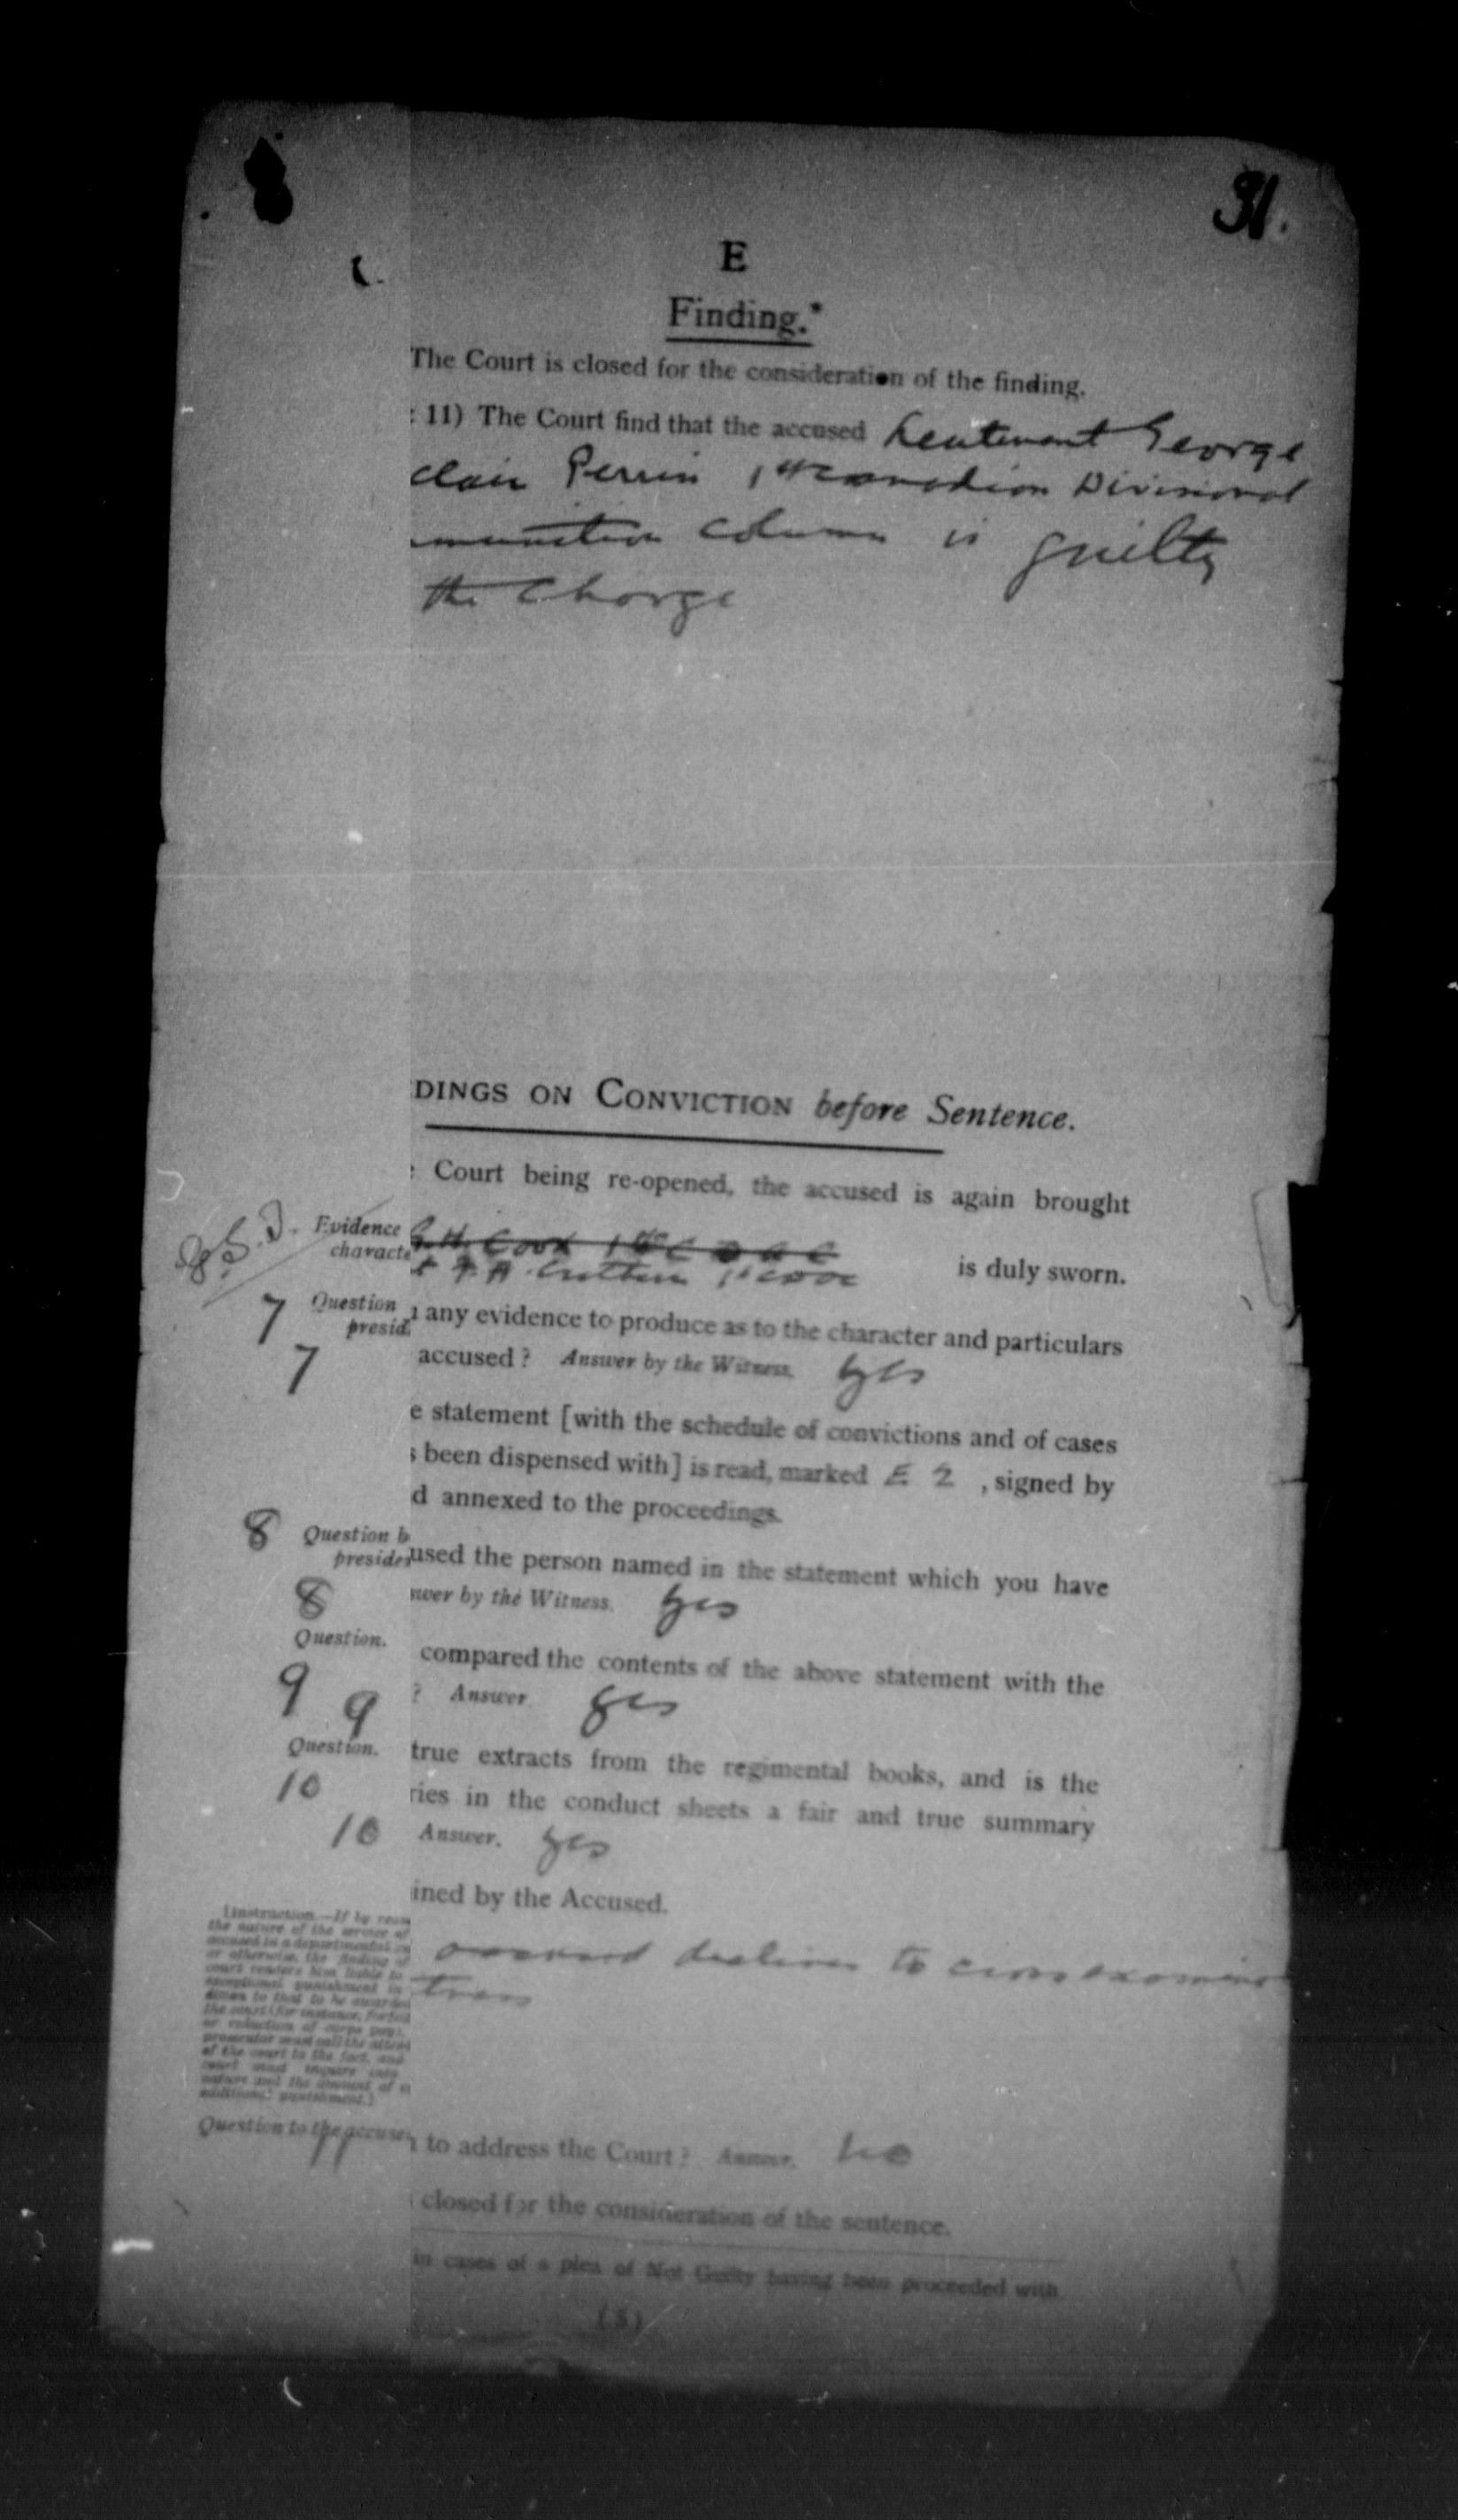 31.
E
Finding.*
The Court is closed for the consideration of the finding.
: 11) The Court find that the accused Lieutenant George
clair Perrin 1st Canadian Divisional
mmunition Column is guilty
the Charge
DINGS ON CONVICTION before Sentence.
Court being re-opened, the accused is again brought
Evidence
characte
G.H. Cook 1st C D A C
is duly sworn.
7 Question
presid
any evidence to produce as to the character and particulars
7 accused? Answer by the Witness. Yes
e statement [with the schedule of convictions and of cases
s been dispensed with] is read, marked E 2 , signed by
d annexed to the proceedings.
8 Question b
presider
used the person named in the statement which you have
8 swer by the Witness. Yes
Question.
compared the contents of the above statement with the
9 9 ? Answer. Yes
Question.
true extracts from the regimental books, and is the
10 ries in the conduct sheets a fair and true summary
10 Answer. Yes
ined by the Accused.
[Instruction.—If by reas
the nature of the service of
accused in a departmental
or otherwise, the finding of
court renders him liable to
exceptional punishment in
dition to that to be awarded
the court (for instance, forfeit
or reduction of corps pay),
prosecutor must call the atten
of the court to the fact, and
court must inquire into
nature and the amount of
additional punishment.]
accused declines to cross examine
Question to the accused
11 to address the Court? Answer. No
closed for the consideration of the sentence.
in cases of a plea of Not Guilty having been proceeded with
(5)